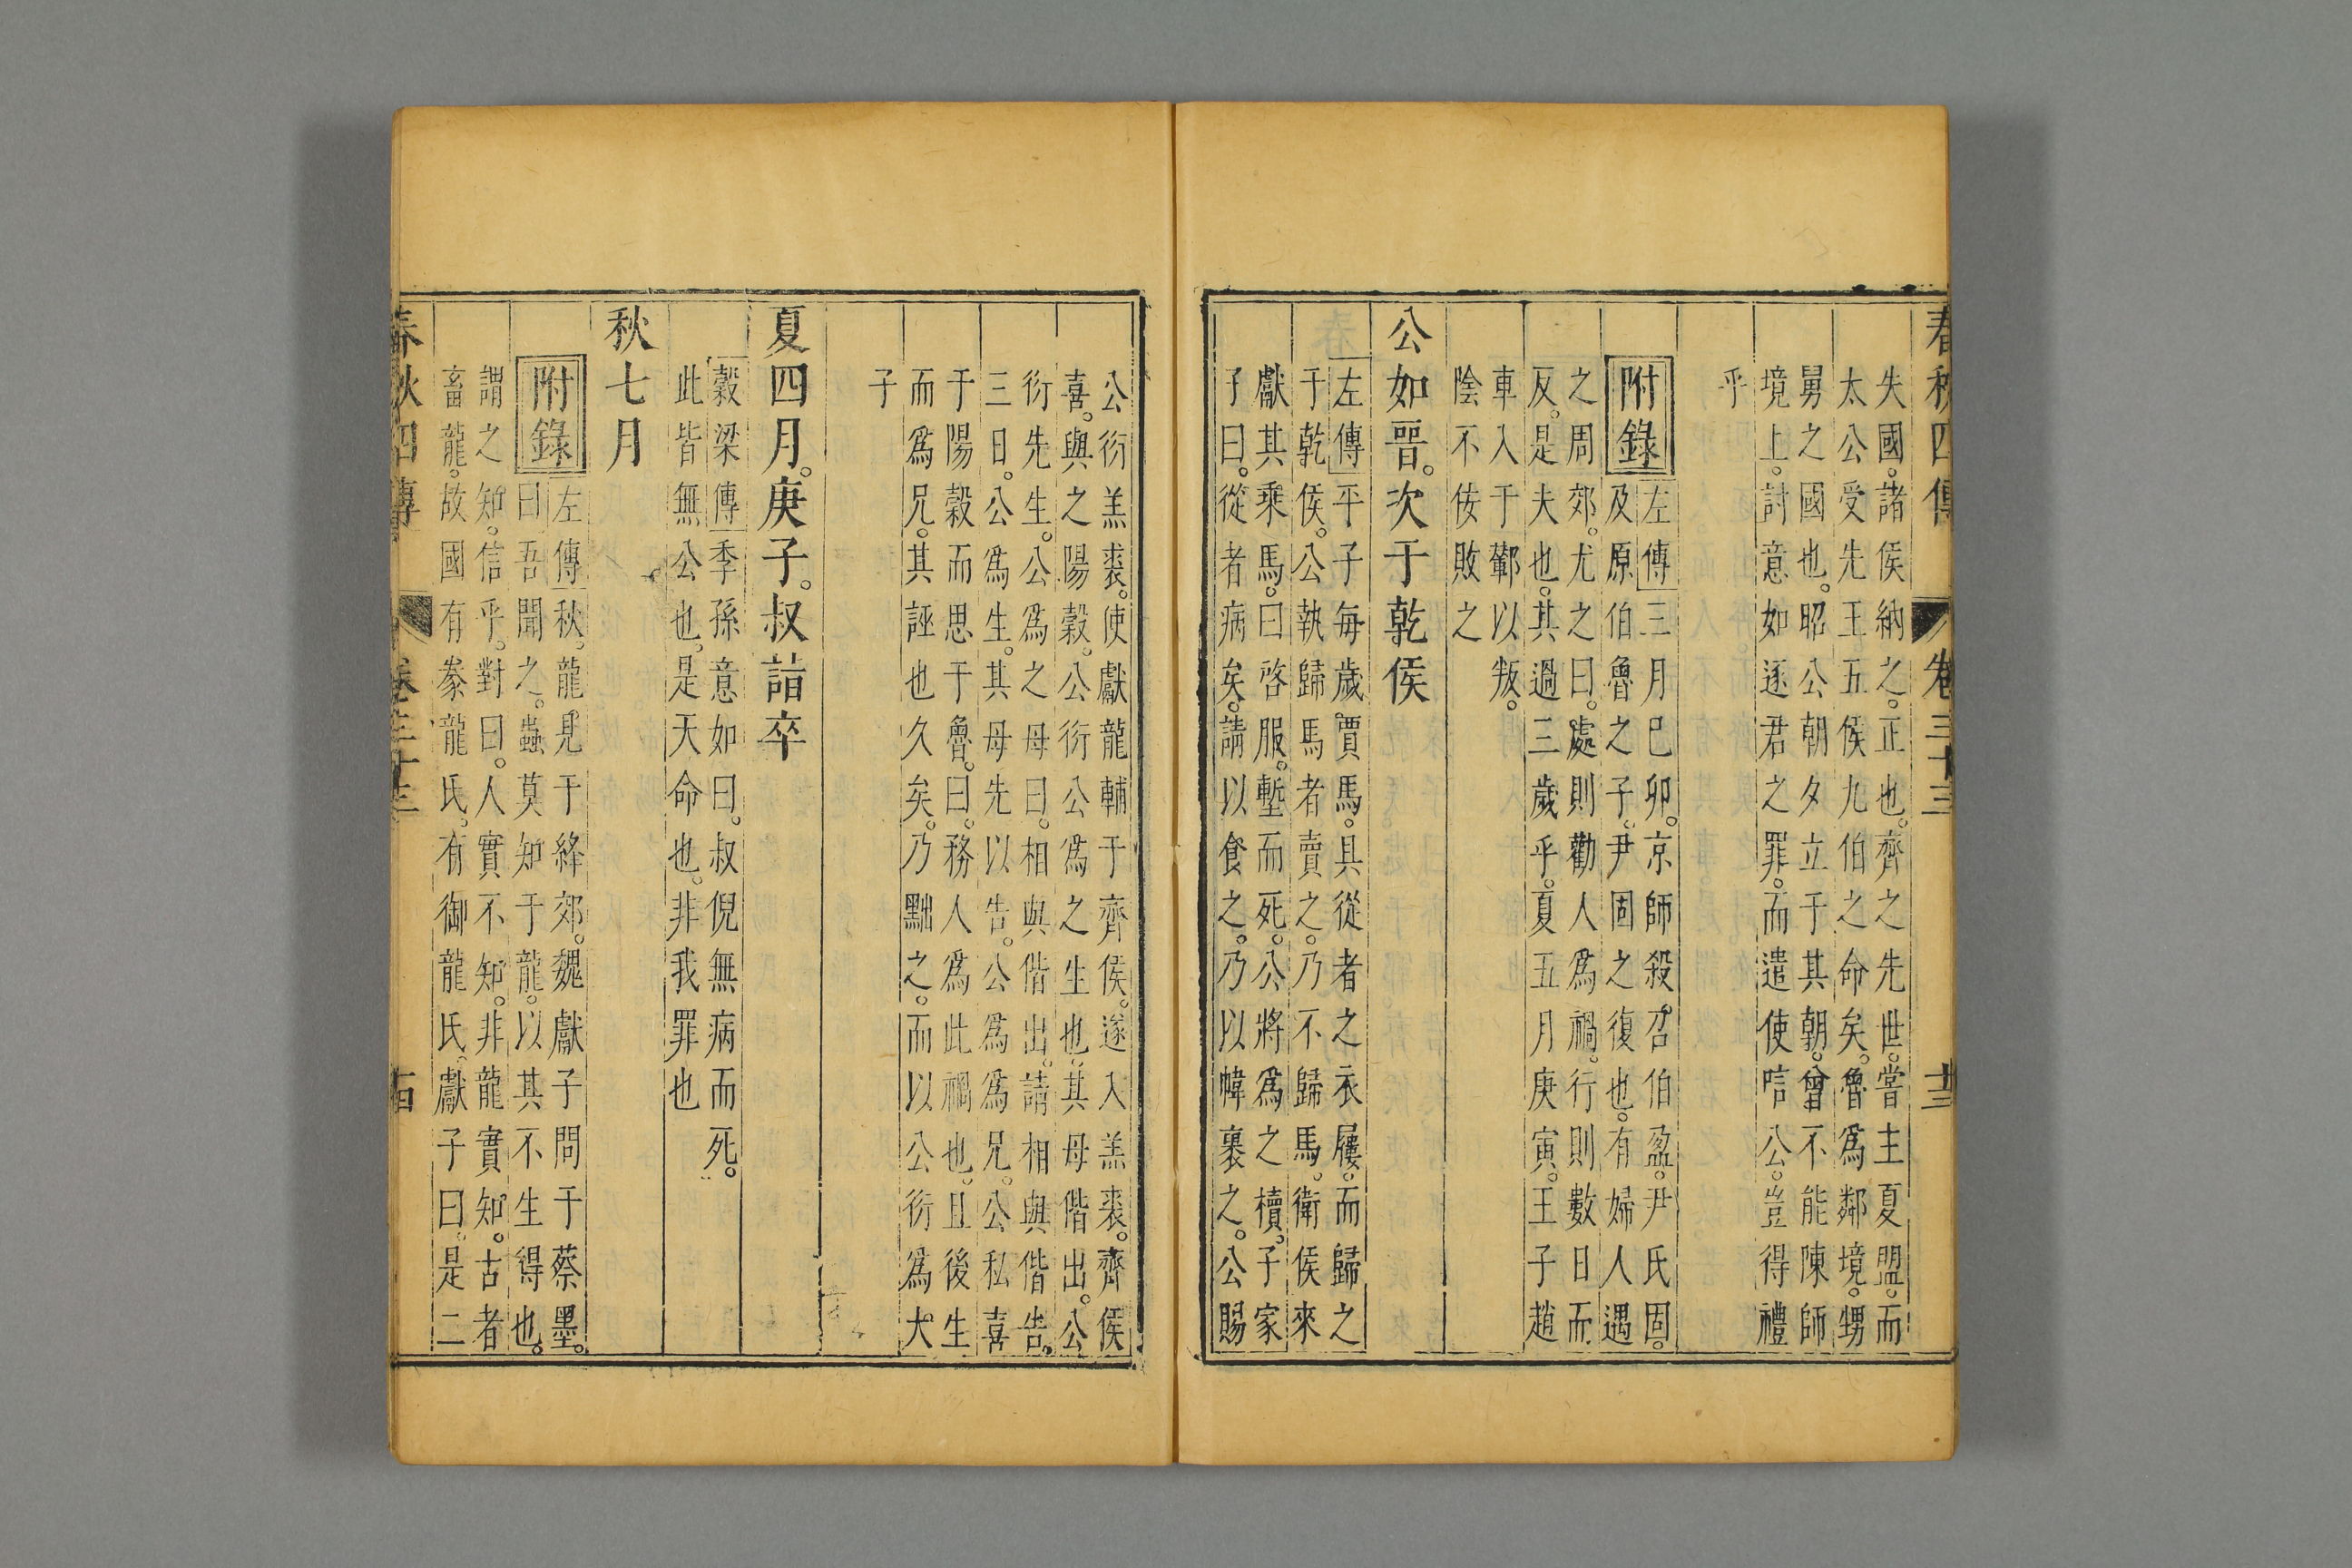 春秋四傳 卷三十三 十三
失國。諸侯納之。正也。齊之先世。嘗主夏盟。而
太公受先王五侯九伯之命矣。魯為鄰境。甥
舅之國也。昭公朝夕立于其朝。曾不能陳師
境上。討意如逐君之罪。而遣使唁公。豈得禮
乎
附錄
左傳三月已卯。京師殺。召伯盈。尹氏固。
及原伯魯之子。尹固之復也。有婦人遇
之周郊。尤之曰。處則勸人為禍。行則數日而
反。是夫也。其過三歲乎。夏五月庚寅。王子趙
車入于鄻以叛。
陰不佞敗之
公如晉。次于乾侯
左傳平子每歲。賈馬。具從者之衣屨。而歸之
于乾侯。公執歸馬者賣之。乃不歸馬。衛侯來
獻其乘馬。曰啓服。塹而死。公將為之櫝。子家
子曰。從者病矣。請以食之。乃以幃裹之。公賜
公衍羔裘。使獻龍輔于齊侯。遂入羔裘。齊侯
喜。與之陽穀。公衍公為之生也。其母偕出。公
衍先生。公為之母曰。相與偕出。請相與偕告。
三日。公為生。其母先以告。公為為兄。公私喜
于陽穀而思于魯。曰。務人為此禍也。且後生
而為兄。其誣也久矣。乃黜之。而以公衍為大
子
夏四月。庚子。叔詣卒
穀梁傳季孫意如曰。叔倪無病而死。
此皆無公也。是天命也。非我罪也
秋七月
附錄
左傳秋。龍。見于絳郊。魏獻子問于蔡墨。
曰吾聞之。蟲莫知于龍。以其不生得也。
謂之知。信乎。對曰。人實不知。非龍實知。古者
畜龍。故國有豢龍氏。有御龍氏。獻子曰。是二
春秋四傳 卷三十三